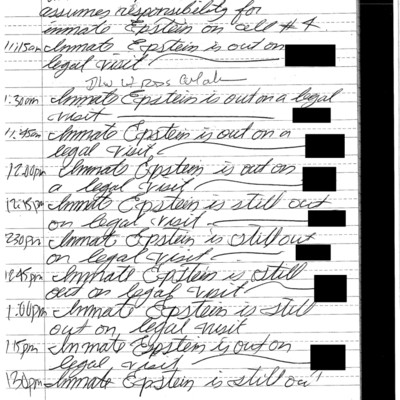 assumes responsibility for
inmate Epstein on cell #4
11:15am Inmate Epstein is out on
legal visit
1:30am Inmate Epstein is out on a legal
visit
11:45am Inmate Epstein is out on a
legal visit
12:00pm Inmate Epstein is out on
a legal visit
12:15pm Inmate Epstein is still out
on legal visit
230pm Inmate Epstein is still out
on legal visit
12:45pm Inmate Epstein is still
out on legal visit
1:00pm Inmate Epstein is still
out on legal visit
115pm Inmate Epstein is out on
legal visit
130pm Inmate Epstein is still out